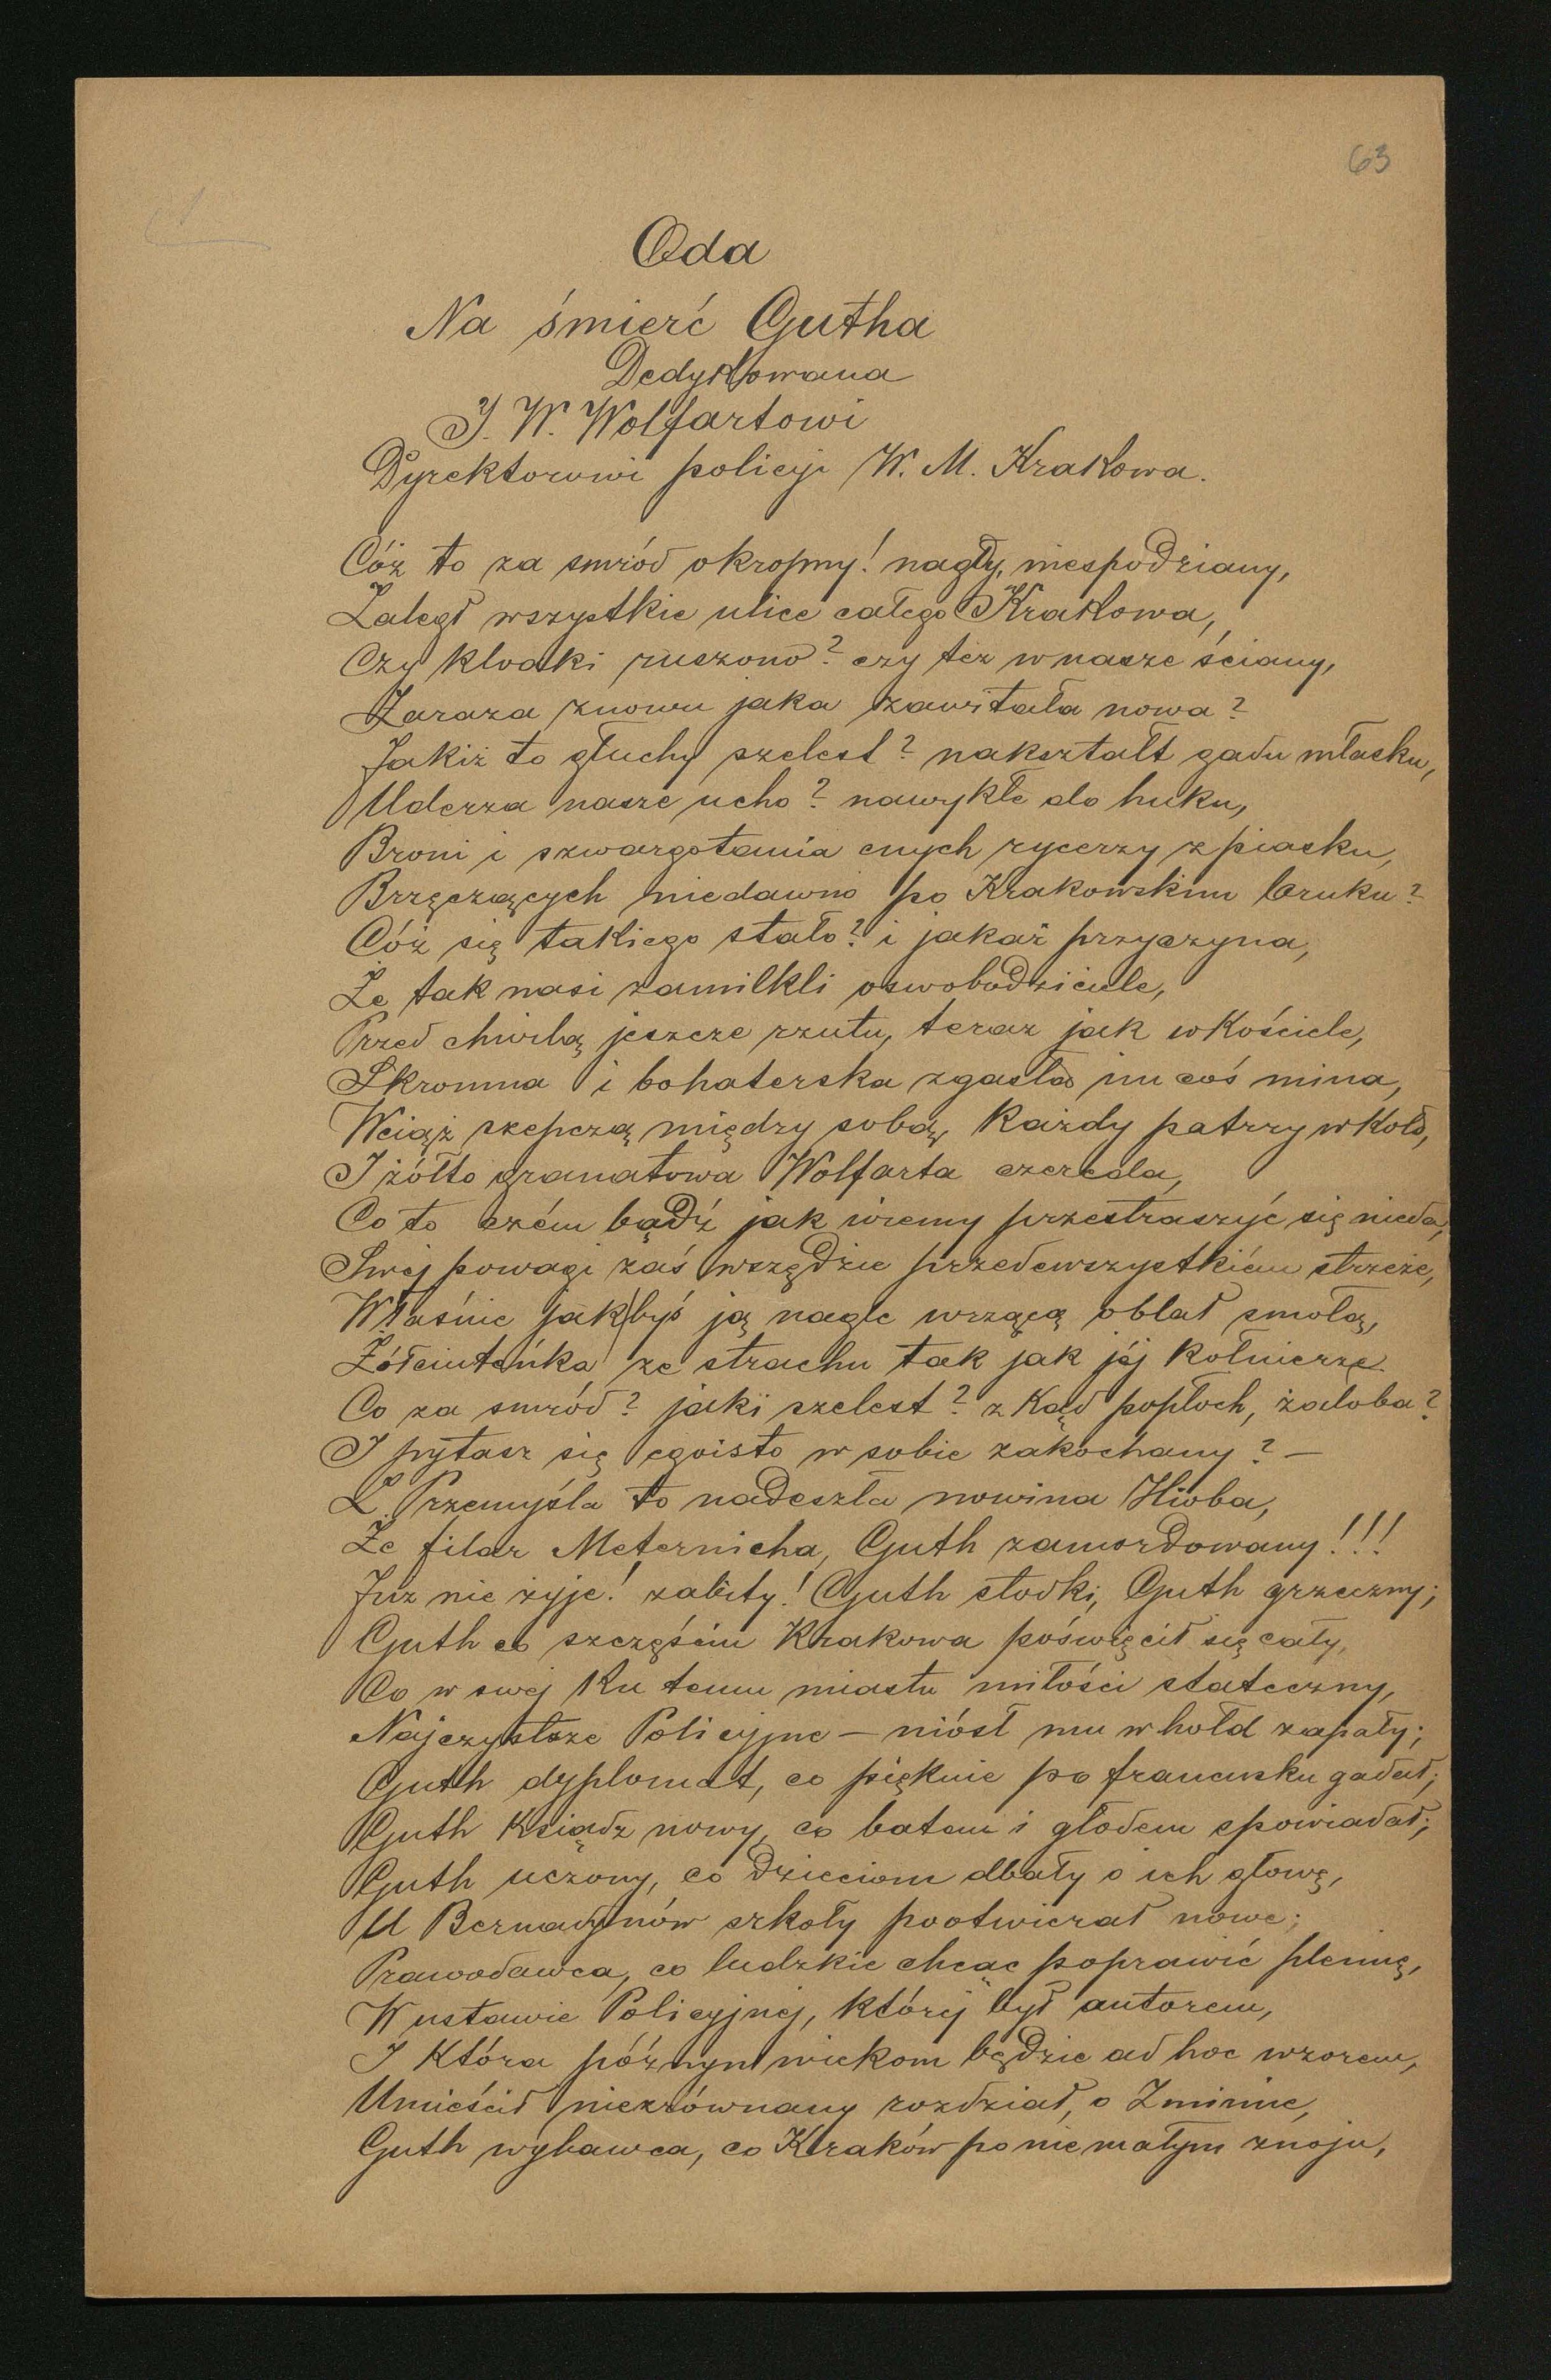 63
Oda
Na śmierć Gutha
Dedykowana
J. W. Wolfartowi
Dyrektorowi policyi W. M. Krakowa.
Cóż to za smród okropny! nagły, niespodziany,
Zaległ wszystkie ulice całego Krakowa,
Czy kloaki ruszono? czy też w nasze ściany,
Zaraza znowu jaka zawitała nowa?
Jakiż to głuchy szelest? nakształt gadu mlasku,
Uderza nasze ucho? nawykłe do huku,
Broni i szwargotania cnych rycerzy z piasku,
Brzęczących niedawno po Krakowskim bruku?
Cóż się takiego stało? i jakaż przyczyna,
Że tak nasi zamilkli oswobodziciele,
Przed chwilą jeszcze rzutu, teraz jak w Kościele,
Skromna i bohaterska zgasła im coś mina,
Wciąż szepczą między sobą, Każdy patrzy w Koło,
I żółto granatowa Wolfarta czereda,
Co to czém bądź jak wiemy przestraszyć się nieda,
Swej powagi zaś wszędzie przedewszystkiém strzeże,
Właśnie jakbyś ją nagle wrzącą oblał smołą,
Żółciuteńka ze strachu tak jak jéj Kołnierze
Co za smród? jaki szelest? z Kąd popłoch, żałoba?
I pytasz się egoisto w sobie zakochany? —
Z Przemyśla to nadeszła nowina Hioba,
Że filar Meternicha, Guth zamordowany!!!
Już nie żyje! zabity! Guth słodki, Guth grzeczny;
Guth co szczęściu Krakowa poświęcił się cały,
Co w swej Ku temu miastu miłości stateczny,
Najczystsze Policyjne — niósł mu w hołd zapały;
Guth dyplomat, co pięknie po francusku gadał;
Guth Ksiądz nowy, co batem i głodem spowiadał;
Guth uczony, co dzieciom dbały o ich głowę,
U Bernadynów szkoły pootwierał nowe;
Prawodawca, co ludzkie chcąc poprawić plemię,
W ustawie Policyjnej, Której był autorem,
I Która późnym wiekom będzie ad hoc wzorem,
Umieścił niezrównany rozdział, o Zminie,
Guth wybawca, co Kraków po nie małym znoju,